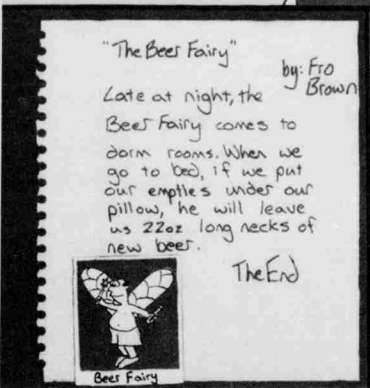 "The Beer Fairy"
by: Fro
Brown
Late at night, the
Beer Fairy comes to
dorm rooms. When we
go to bed, if we put
our empties under our
pillow, he will leave
us 22oz long necks of
new beer.
The End
Beer Fairy